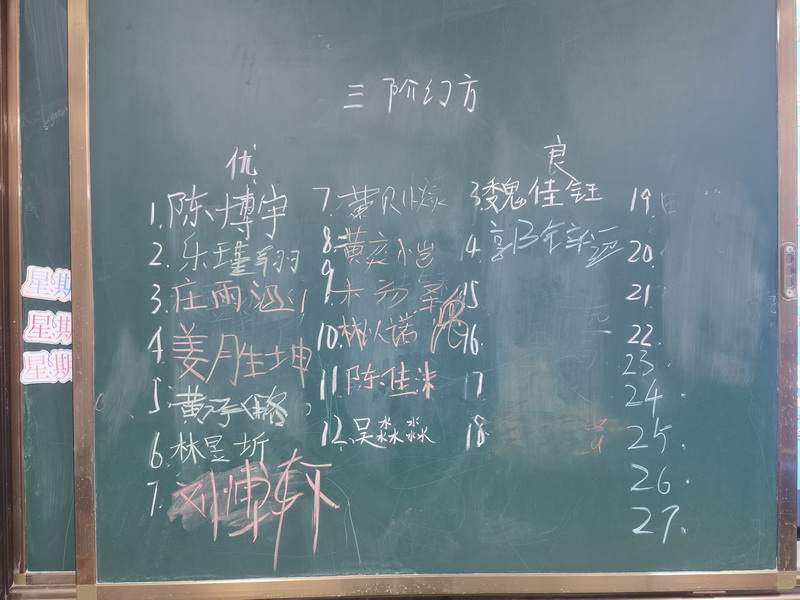 三阶幻方
优
良
1.陈博宇
2.乐瑾翔
3.庄雨涵
4 姜胜坤
5.黄子
6.林昱圻
7.刘博轩
7.黄
8.黄奕
9
10.林以诺
11.陈佳
12.吴淼淼
3 魏佳钰
4.郭
15
16
17
18
19.
20.
21
22
23
24.
25.
26.
27.
星期
星期
星期